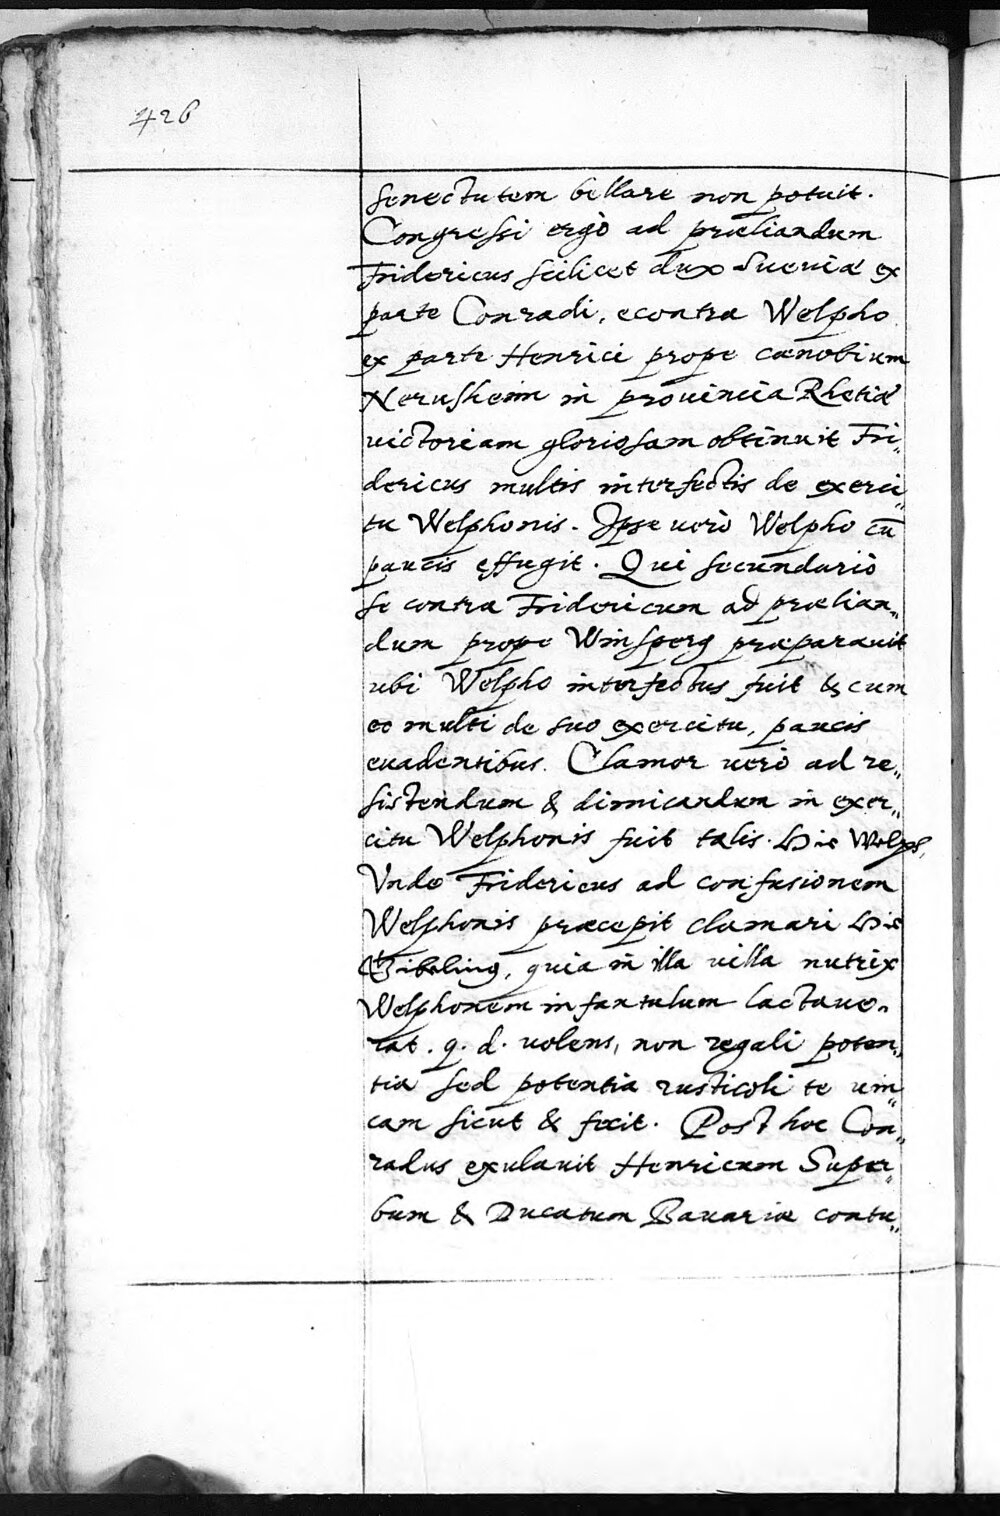 426
senectutem bellare non potuit.
Congressi ergò ad præliandum
Fridericus scilicet dux Sueviæ ex
parte Conradi, econtra Welpho
ex parte Henrici prope cœnobium
Nerusheim in prouincia Rhetiæ
uictoriam gloriosam obtinuit Fri„
dericus multis interfectis de exerci„
tu Welphonis. Ipse uerò Welpho cū
paucis effugit. Qui secundariò
se contra Fridericum ad prælian„
dum prope Winsperg præparauit
ubi Welpho interfectus fuit & cum
eo multi de suo exercitu, paucis
euadentibus. Clamor uerò ad re„
sistendum & dimicandum in exer„
citu Welphonis fuit talis. Hie Welph,
Vnde Fridericus ad confusionem
Welphonis præcepit clamari Hie
Gibeling, quia in illa uilla nutrix
Welphonem infantulum lactaue„
rat. q. d. uolens, non regali poten„
tia sed potentia rusticoli te uin„
cam sicut & fecit. Post hoc Con„
radus exulauit Henricum Super„
bum & Ducatum Bauariæ contu„